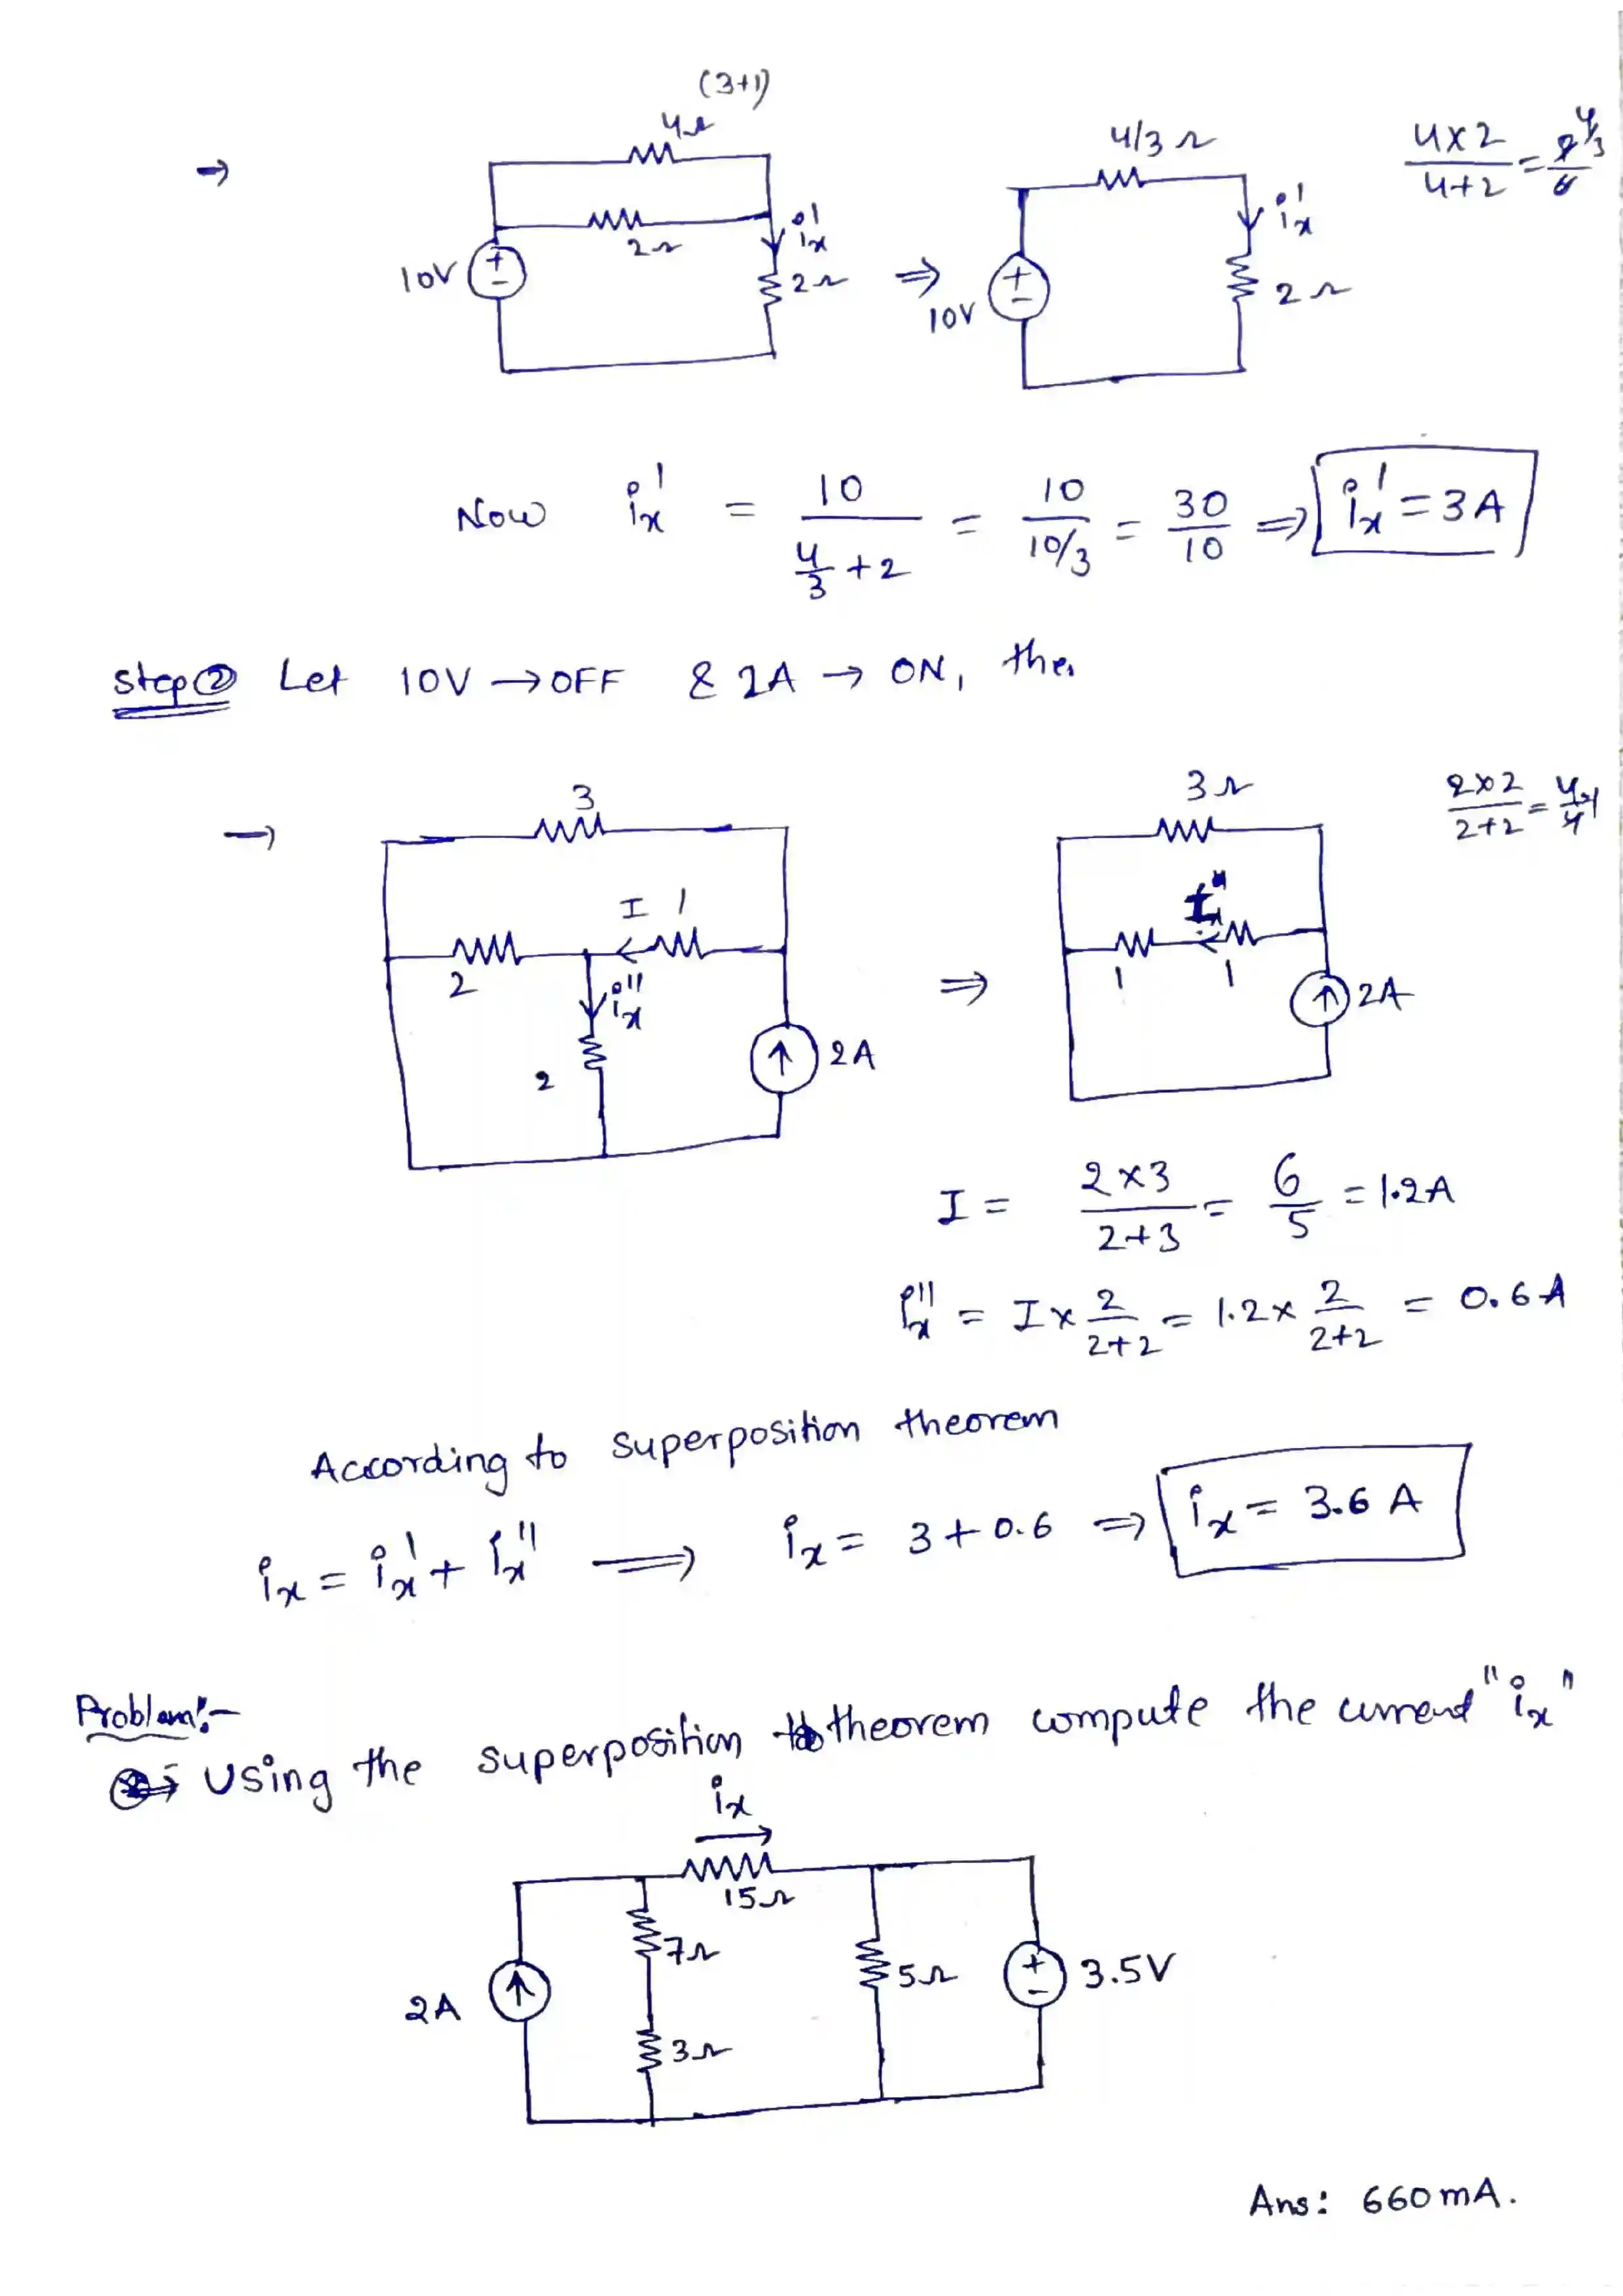 (3+1)
4Ω
2Ω
10V
+
-
i'x
2Ω
⇒
4/3 Ω
10V
+
-
i'x
2Ω
4×2/4+2 = 8/6 4/3
Now i'x = 10/(4/3+2) = 10/(10/3) = 30/10 ⇒ i'x = 3A
Step② Let 10V → OFF & 2A → ON, the
3
I 1
2
i''x
2
2A
⇒
3Ω
1
1
2A
2×2/2+2 = 4/4 = 1
I = 2×3/2+3 = 6/5 = 1.2A
i''x = I × 2/2+2 = 1.2 × 2/2+2 = 0.6A
According to superposition theorem
ix = i'x + i''x ⟹ ix = 3 + 0.6 ⇒ ix = 3.6 A
Problem:-
Using the superposition theorem compute the current "ix"
ix
15Ω
7Ω
3Ω
2A
5Ω
+
-
3.5V
Ans: 660mA.